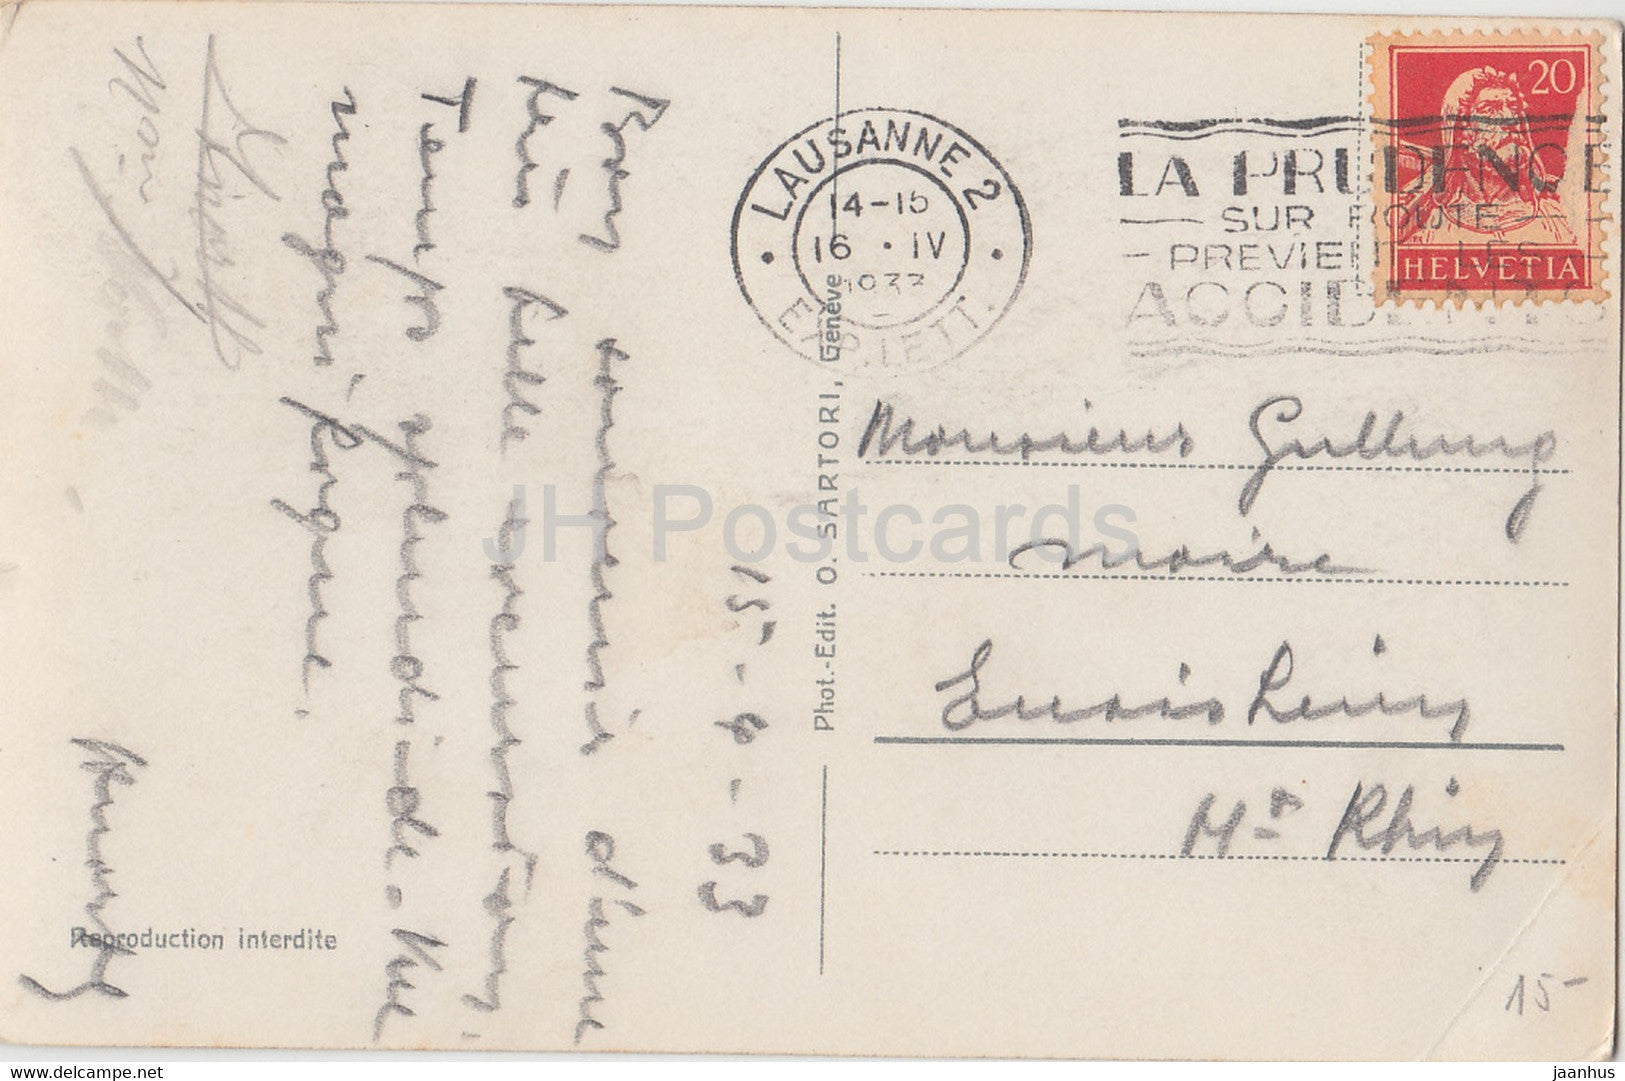 15-4-33
Bon souvenir d'une
très belle excursion,
Temps splendide. Vue
magni-fique.
LAUSANNE 2
14-15
16 · IV
1933
EXP. LETT.
LA PRUDENCE
SUR ROUTE
PREVIENT LES
ACCIDENTS
20
HELVETIA
Monsieur
Maire
Ensisheim
Ht Rhin
Phot.-Edit. O. SARTORI, Genève
Reproduction interdite
15-
JH Postcards
www.delcampe.net
jaanhus